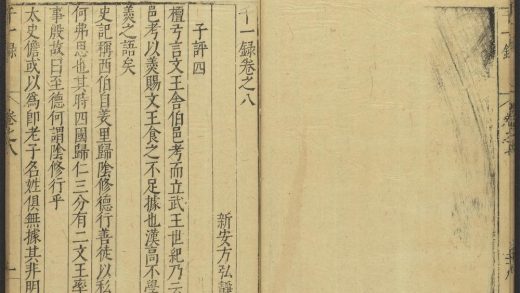 千一錄卷之八
新安方弘靜
子評四
檀弓言文王舍伯邑考而立武王世紀乃云
邑考以羹賜文王食之不足據也漢高不學
羹之語矣
史記稱西伯自羑里歸陰修德行善徒以私
何弗思也其時四國歸仁三分有二文王率
事殷故曰至德何謂陰修行乎
太史儋或以為即老子名姓俱無據其非明
千一錄
卷之八
一